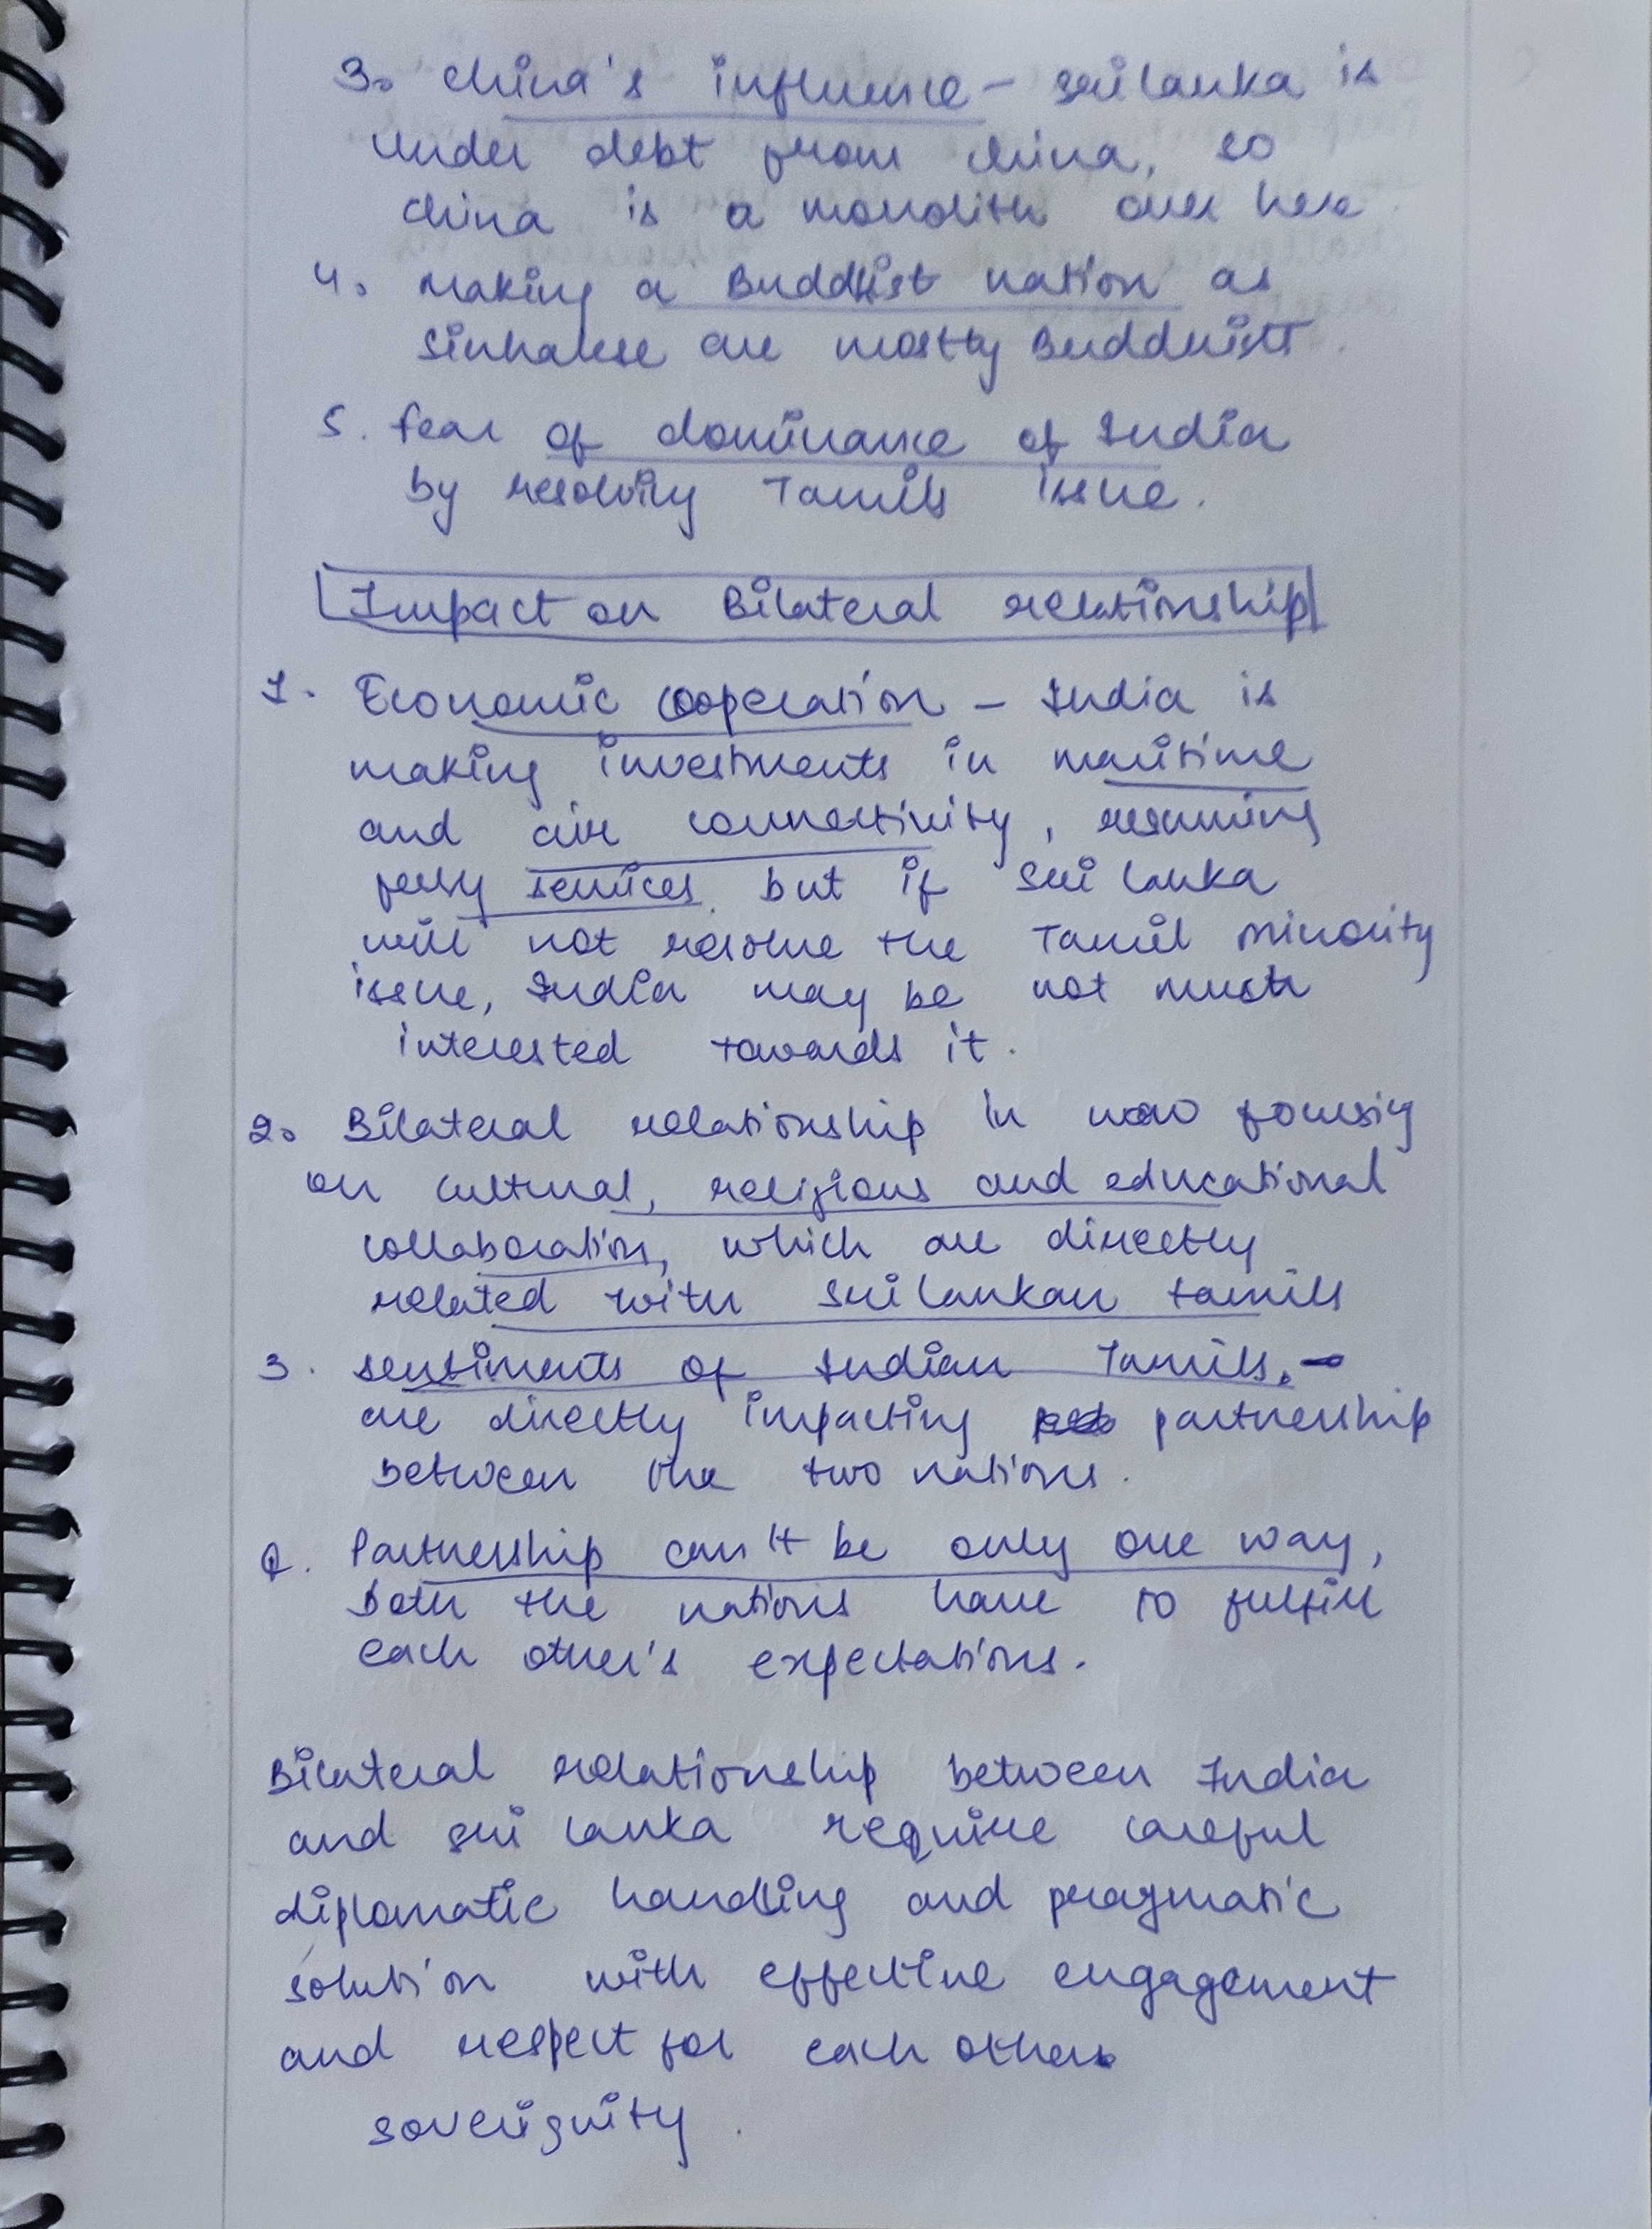 3. China's influence - Sri lanka is
under debt from china, so
china is a monolith over here
4. Making a Buddhist nation as
Sinhalese are mostly Buddhists.
5. Fear of dominance of India
by resolving Tamils issue.
Impact on Bilateral relationship
1. Economic cooperation - India is
making investments in maritime
and air connectivity, resuming
ferry services. but if Sri Lanka
will not resolve the Tamil minority
issue, India may be not much
interested towards it.
2. Bilateral relationship in now focusing
on cultural, religious and educational
collaboration, which are directly
related with Sri Lankan tamils
3. sentiments of Indian Tamils. -
are directly impacting partnership
between the two nations.
Q. Partnership can't be only one way,
both the nations have to fulfill
each other's expectations.
Bilateral relationship between India
and Sri Lanka require careful
diplomatic handling and pragmatic
solution with effective engagement
and respect for each others
soverignity.